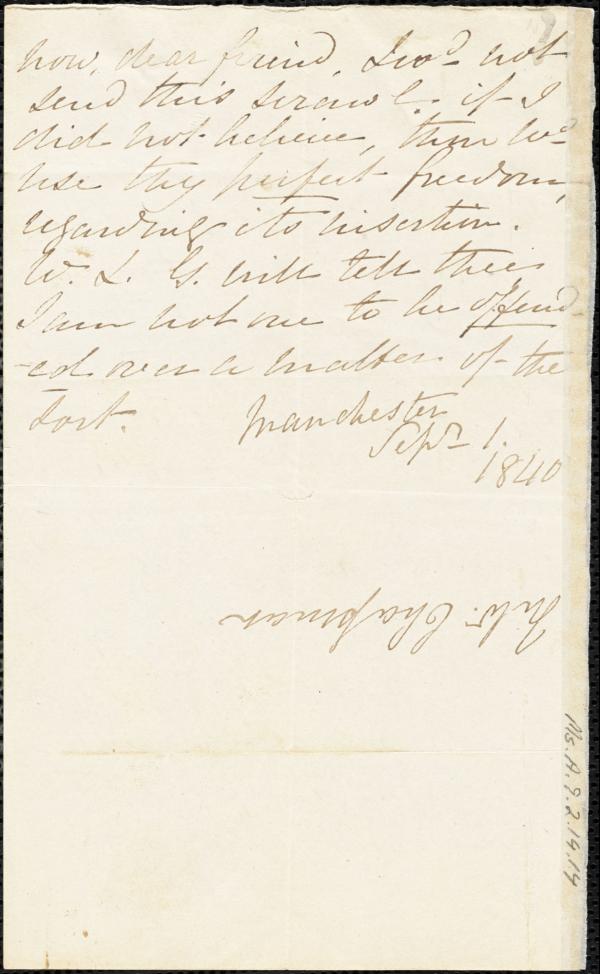 now, dear friend, I wod not
send this scrawl if I
did not believe, thou wd
use thy perfect freedom,
regarding its insertion.
W. L. G. will tell thee
I am not one to be offend-
-ed over a matter of the
sort.
Manchester
Sepr 1.
1840
Chapman
Ms. A. 9.2.14.14